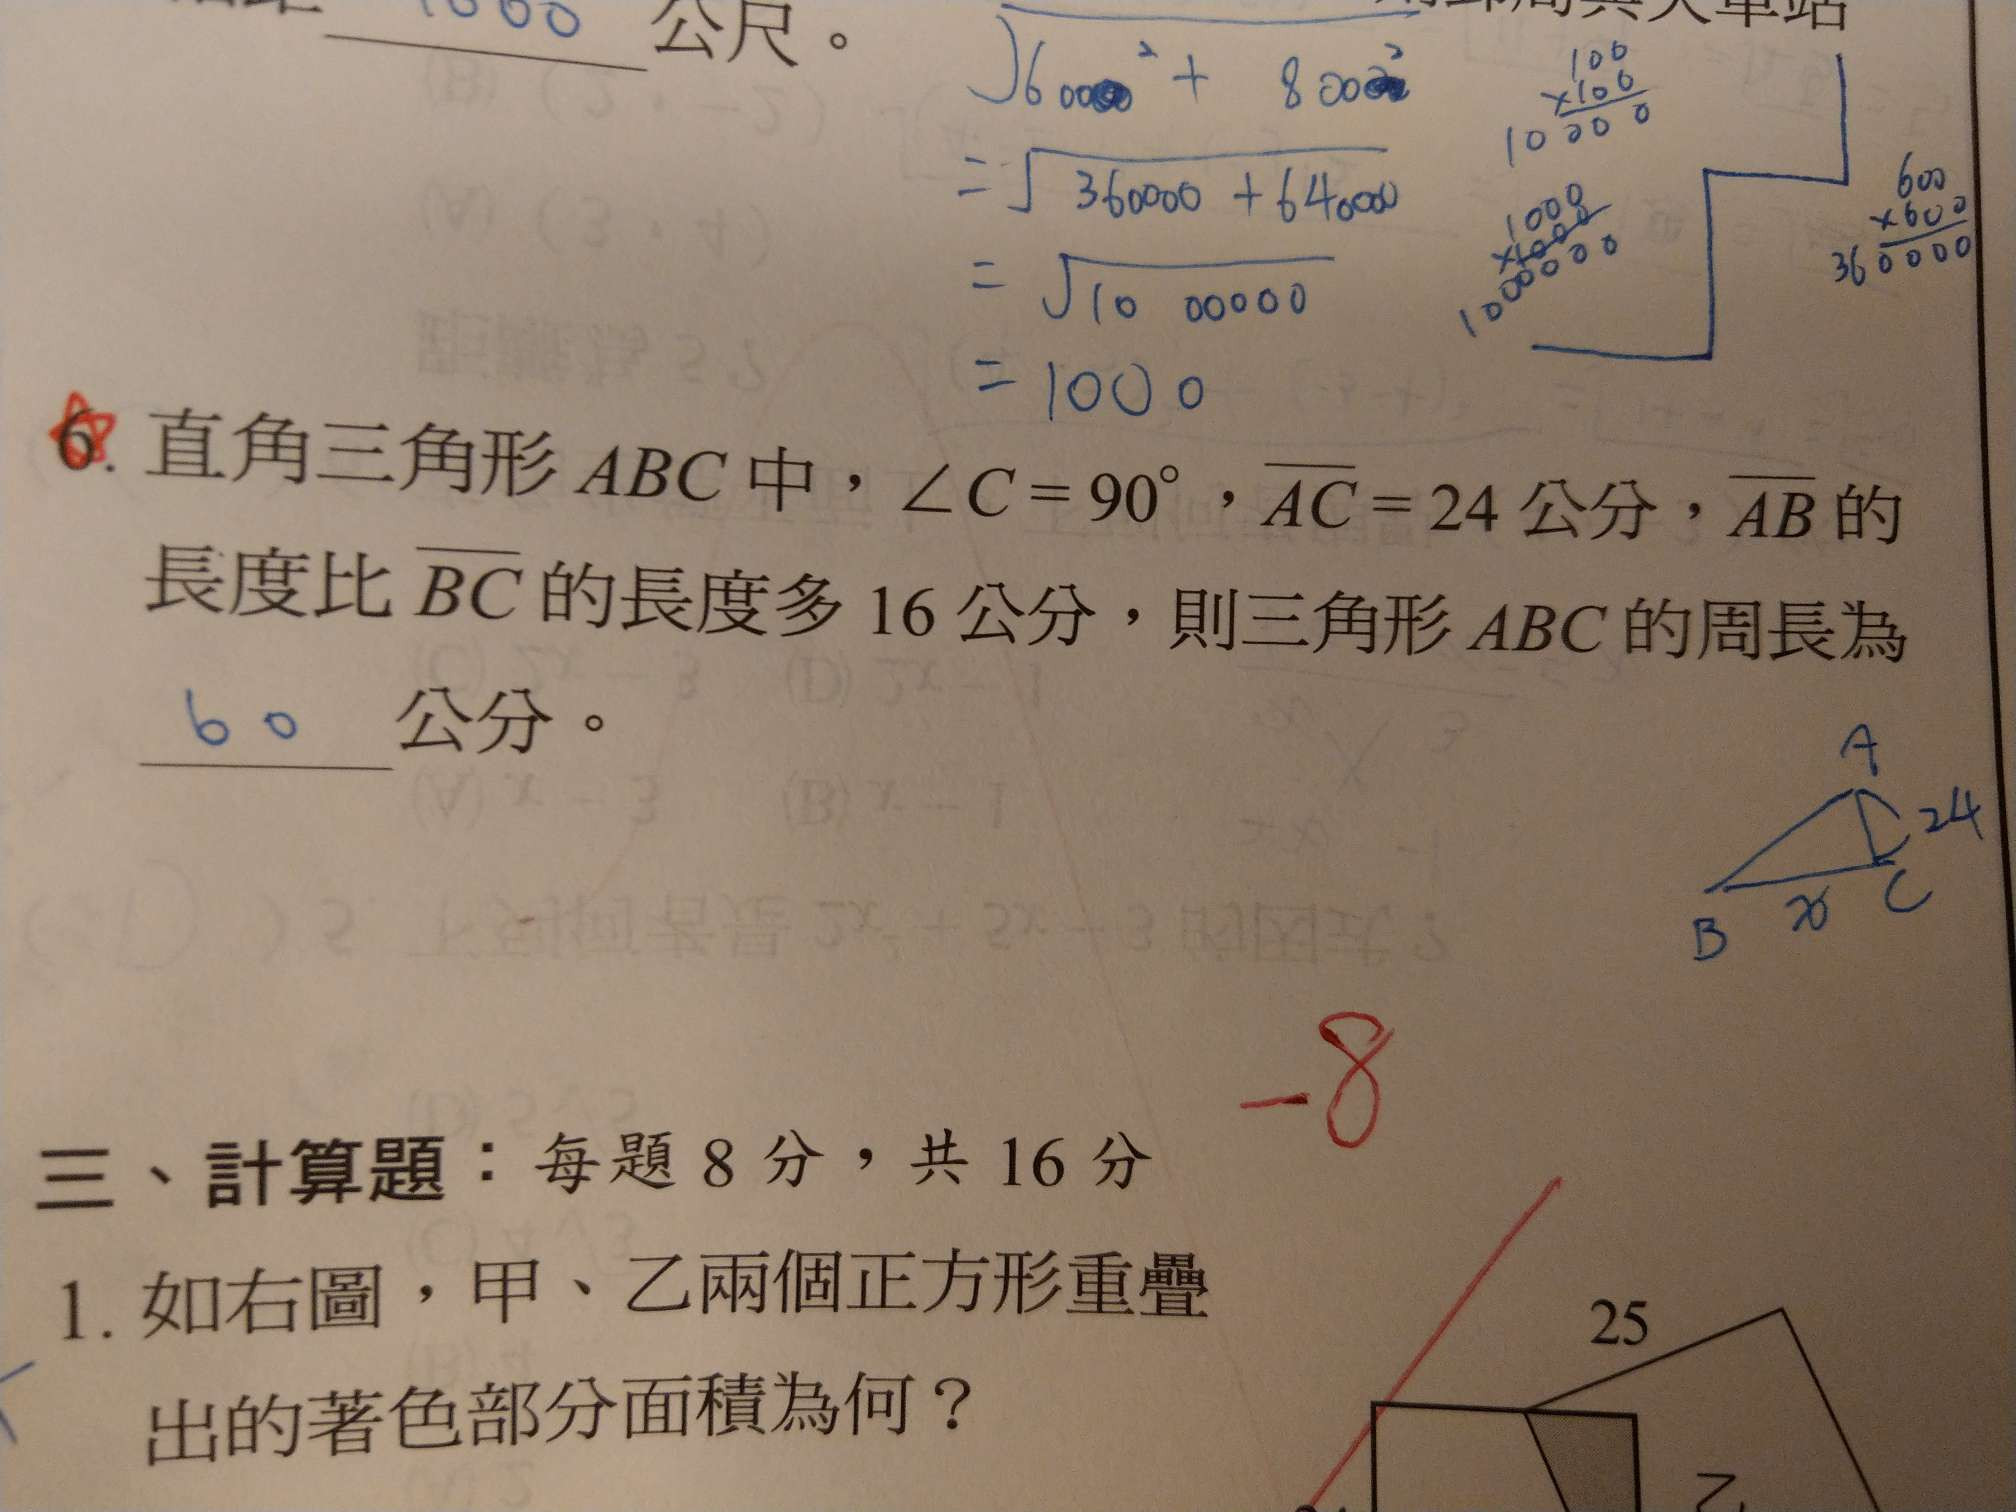 1000 公尺。
√600² + 800²
= √360000 + 640000
= √1000000
= 1000
100
×100
10000
1000
×1000
1000000
600
×600
360000
6. 直角三角形 ABC 中，∠C = 90°，AC = 24 公分，AB 的
長度比 BC 的長度多 16 公分，則三角形 ABC 的周長為
60 公分。
A
24
B x C
-8
三、計算題：每題 8 分，共 16 分
1. 如右圖，甲、乙兩個正方形重疊
出的著色部分面積為何？
25
乙